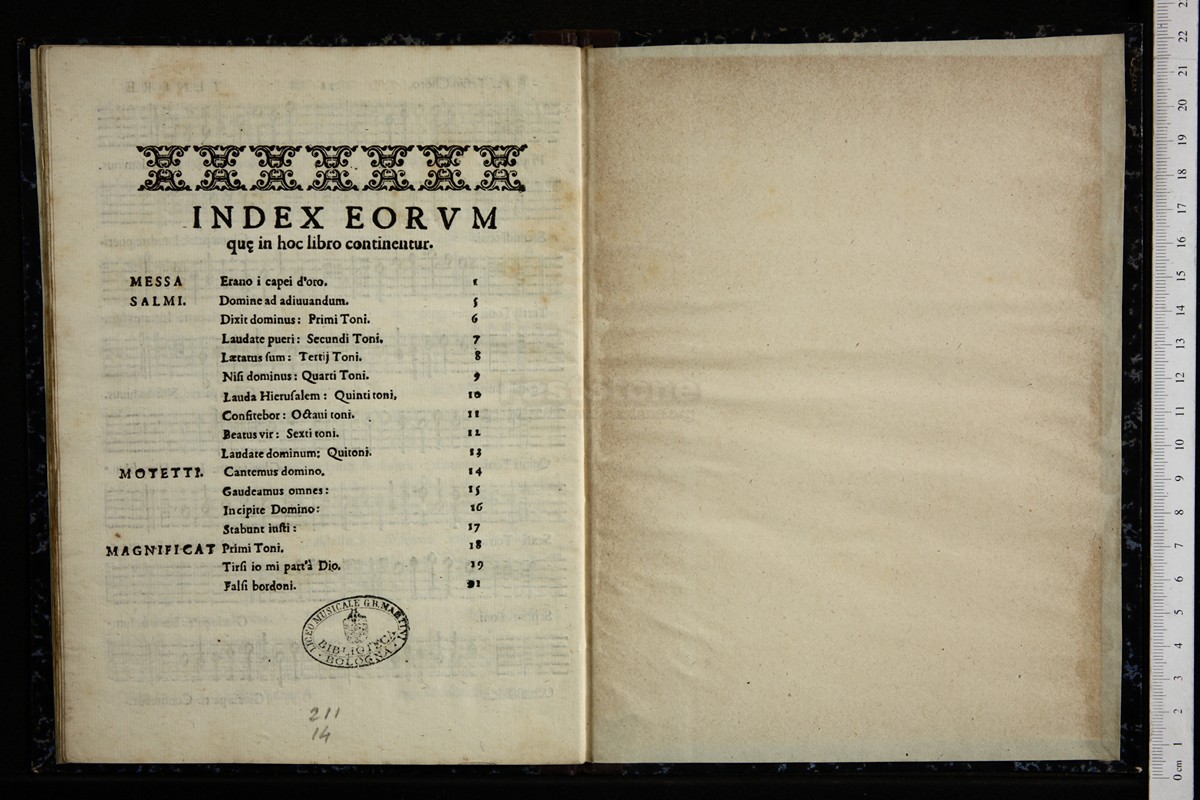 INDEX EORVM
quę in hoc libro continentur.
MESSA Erano i capei d'oro. 1
SALMI. Domine ad adiuuandum. 5
Dixit dominus: Primi Toni. 6
Laudate pueri: Secundi Toni. 7
Lætatus ſum: Tertij Toni. 8
Niſi dominus: Quarti Toni. 9
Lauda Hieruſalem: Quinti toni, 10
Confitebor: Octaui toni. 11
Beatus vir: Sexti toni. 12
Laudate dominum: Quitoni. 13
MOTETTI. Cantemus domino. 14
Gaudeamus omnes: 15
Incipite Domino: 16
Stabunt iuſti: 17
MAGNIFICAT Primi Toni. 18
Tirſi io mi part'à Dio. 19
Falſi bordoni. 21
LICEO MUSICALE G.B. MARTINI
BIBLIOTECA
BOLOGNA
211
14
22
21
20
19
18
17
16
15
14
13
12
11
10
9
8
7
6
5
4
3
2
1
0 cm